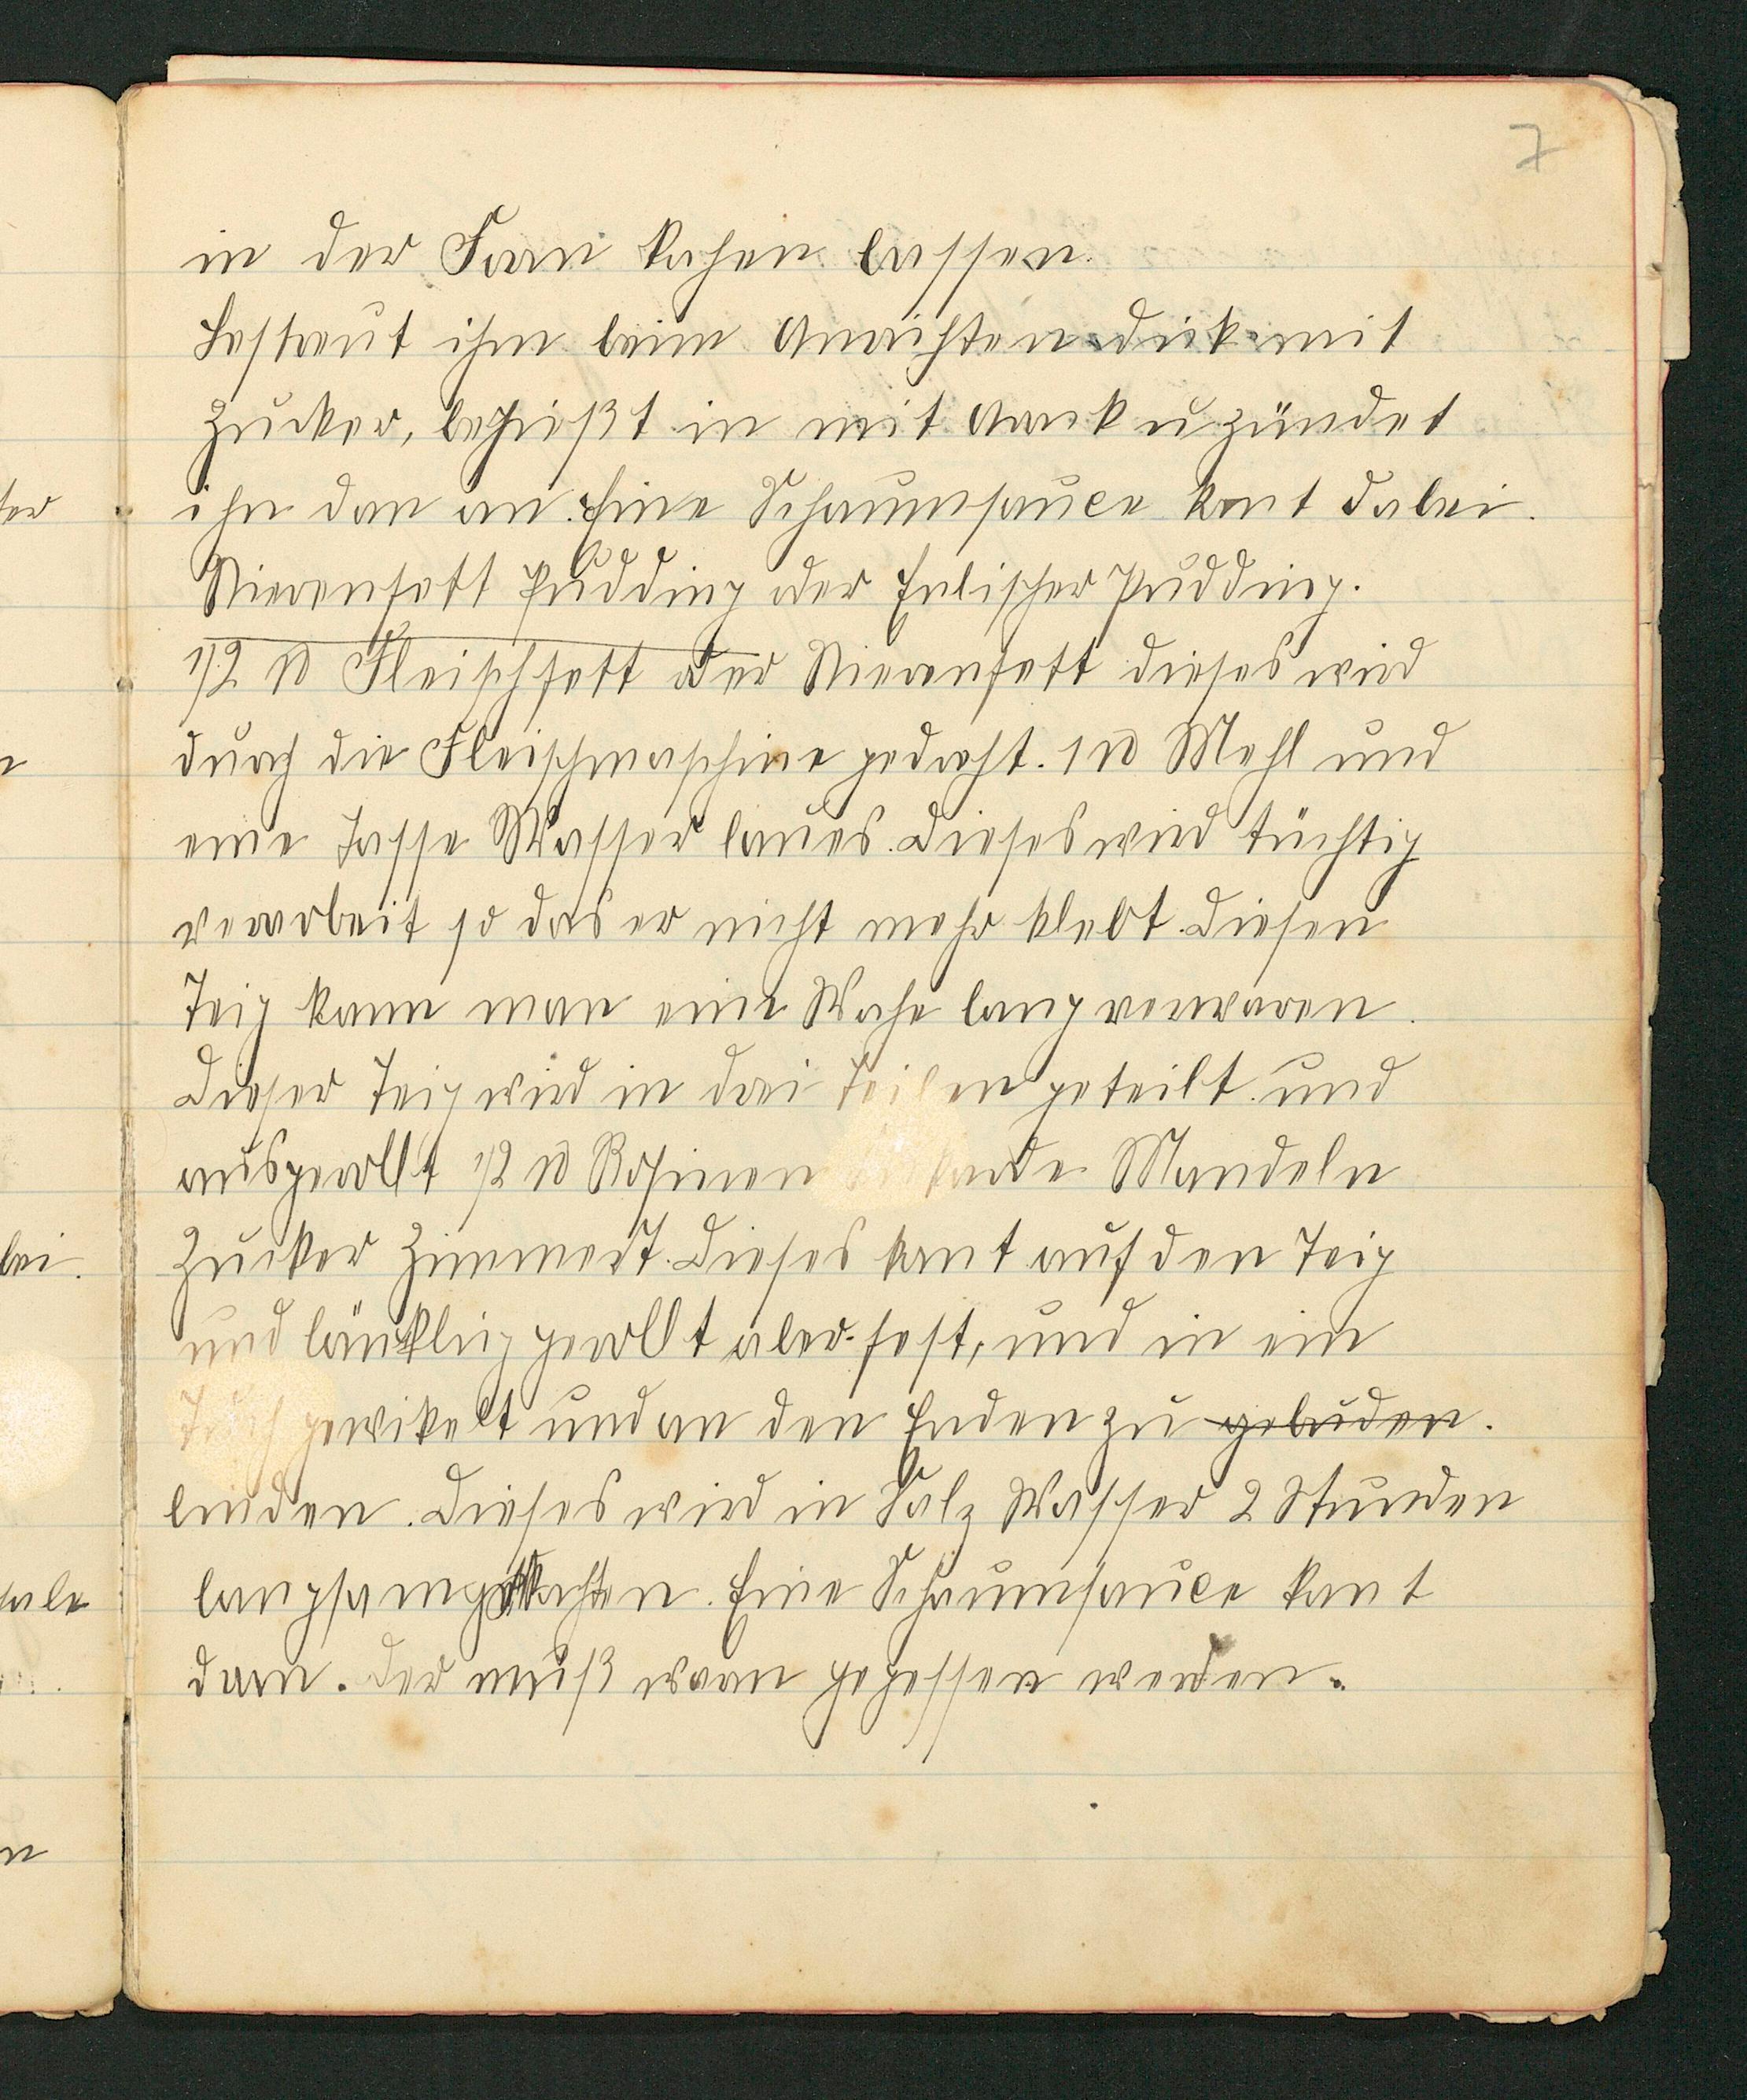 7
in der Foan kochen lassen.
Bestreut ihm beim Anrichten dick mit
Zucker, begießt in mit Arrak u zündet
ihn dan an. Eine Schaumsauce komt dabei.
Nierenfett Pudding oder Enlischer Pudding.
1/2 ℔ Fleischfett oder Nierenfett dieses wird
durch die Fleischmaschine gedreht. 1 ℔ Mehl und
eine Tasse Wasser laues. Dieses wird tüchtig
verarbeit so das er nicht mehr klebt. Diesen
Teig kann man eine Woche lang verwaren.
Dieser Teig wird in drei Teilen geteilt. und
ausgerollt 1/2 ℔ Rosinen Mandeln
Zucker Zimmert. Dieses komt auf den Teig
und länklig gerollt aber fest, und in ein
Tuch gewikelt und an den Enden zu gebuden.
binden. Dieses wird in Salz Wasser 2 Stunden
langsam kochen. Eine Schaumsauce komt
daran. Der muß warm gegessen werden.
ter
n
bei.
sale
n